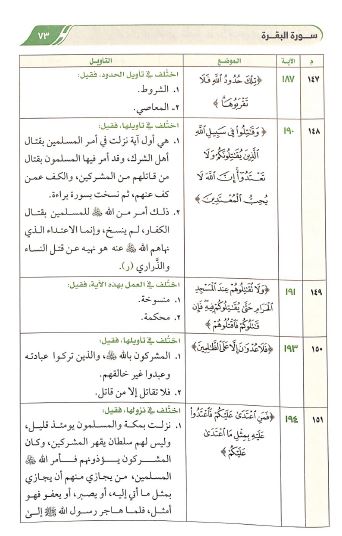 سـورة البقـرة
٧٣
م
الآية
الموضع
التأويل
١٤٧
١٨٧
﴿تِلْكَ حُدُودُ اللَّهِ فَلَا
تَقْرَبُوهَا﴾
اختُلف في تأويل الحدود، فقيل:
١. الشروط.
٢ـ المعاصي.
١٤٨
١٩٠
﴿وَقَاتِلُوا فِي سَبِيلِ اللَّهِ
الَّذِينَ يُقَاتِلُونَكُمْ وَلَا
تَعْتَدُوا إِنَّ اللَّهَ لَا
يُحِبُّ الْمُعْتَدِينَ﴾
اختُلف في تأويلها، فقيل:
١. هي أول آية نزلت في أمر المسلمين بقتال
أهل الشرك، وقد أمر فيها المسلمون بقتال
من قاتلهم من المشركين، والكف عمن
كف عنهم، ثم نسخت بسورة براءة.
٢. ذلك أمر من الله ﷻ للمسلمين بقتال
الكفار، لم ينسخ، وإنما الاعتداء الذي
نهاهم الله عنه هو نهيه عن قتل النساء
والذَّراري (ر).
١٤٩
١٩١
﴿وَلَا تُقَاتِلُوهُمْ عِنْدَ الْمَسْجِدِ
الْحَرَامِ حَتَّى يُقَاتِلُوكُمْ فِيهِ فَإِنْ
قَاتَلُوكُمْ فَاقْتُلُوهُمْ﴾
اختُلف في العمل بهذه الآية، فقيل:
١. منسوخة.
٢. محكمة.
١٥٠
١٩٣
﴿فَلَا عُدْوَانَ إِلَّا عَلَى الظَّالِمِينَ﴾
اختُلف في تأويلها، فقيل:
١. المشركون بالله ﷻ، والذين تركوا عبادته
وعبدوا غير خالقهم.
٢. فلا تقاتل إلا من قاتل.
١٥١
١٩٤
﴿فَمَنِ اعْتَدَى عَلَيْكُمْ فَاعْتَدُوا
عَلَيْهِ بِمِثْلِ مَا اعْتَدَى
عَلَيْكُمْ﴾
اختُلف في نزولها، فقيل:
١. نزلت بمكة والمسلمون يومئذ قليل،
وليس لهم سلطان يقهر المشركين، وكان
المشركون يؤذونهم فأمر الله ﷻ
المسلمين، من يجازي منهم أن يجازي
بمثل ما أتي إليه، أو يصبر، أو يعفو فهو
أمثل، فلما هاجر رسول الله ﷺ إلىٰ